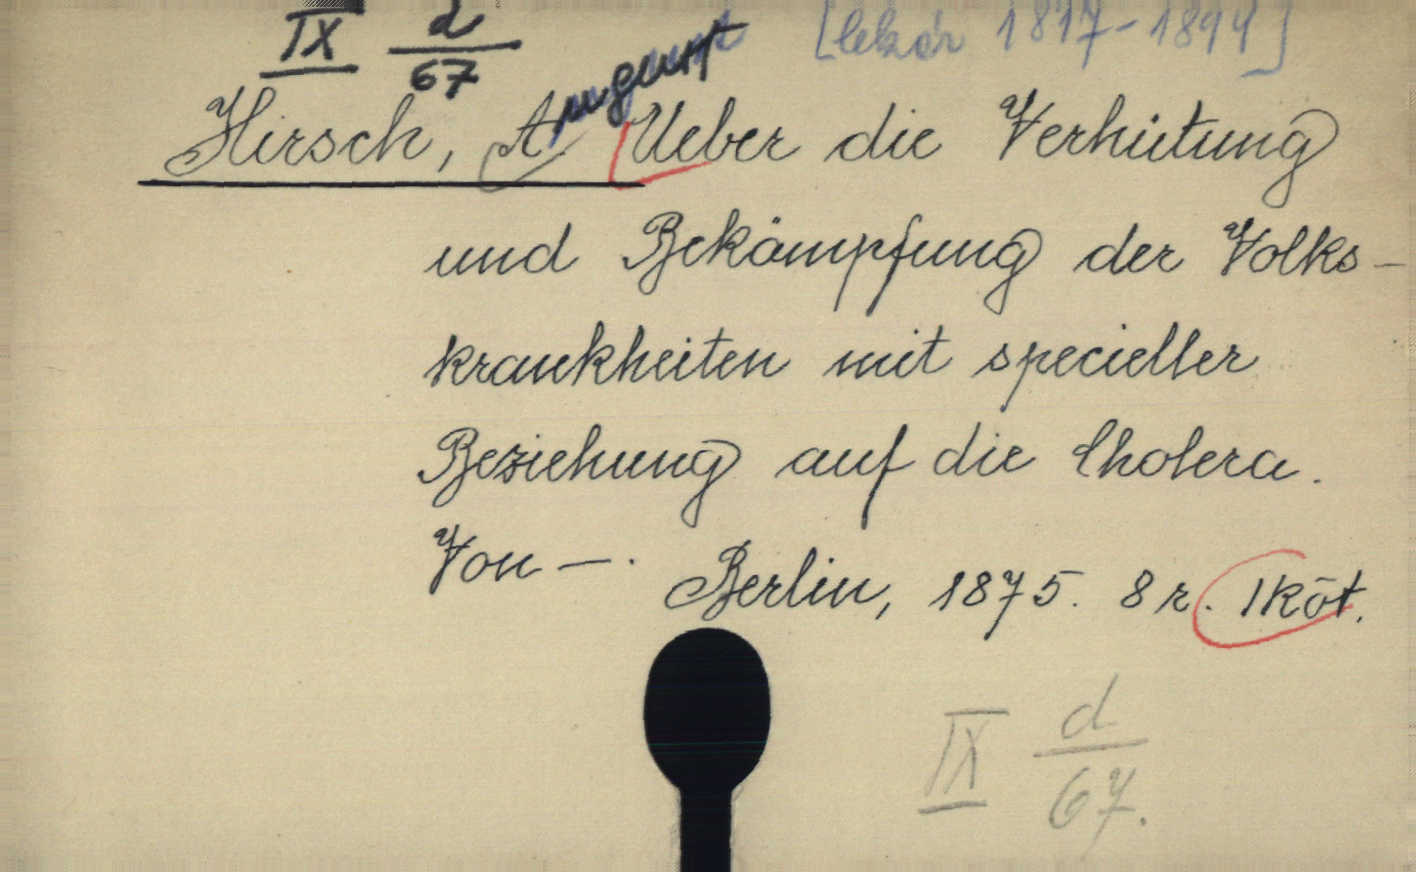 IX d/67 [lekár 1817-1894]
Hirsch, August Ueber die Verhütung
und Bekämpfung der Volks-
krankheiten mit specieller
Beziehung auf die Cholera.
Von —. Berlin, 1875. 8r. 1 köt.
IX d/67.